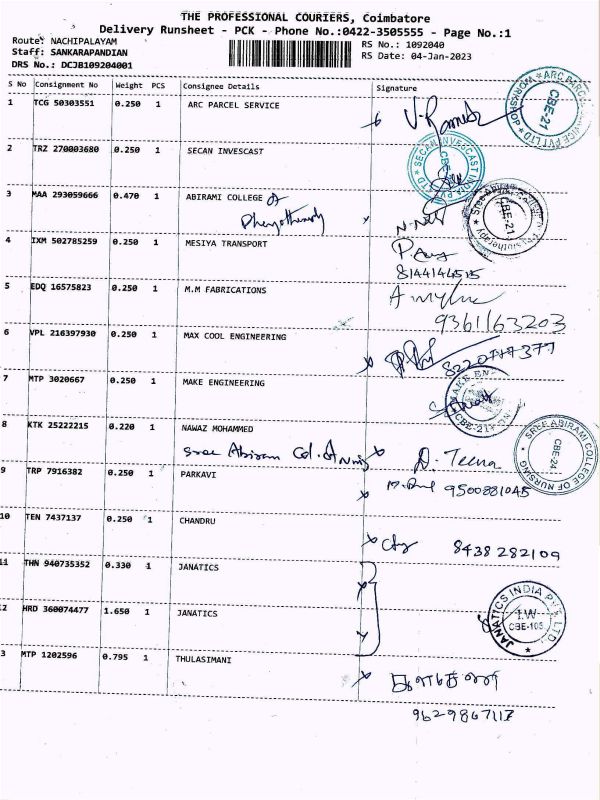 THE PROFESSIONAL COURIERS, Coimbatore
Delivery Runsheet - PCK - Phone No.:0422-3505555 - Page No.:1
Route: NACHIPALAYAM
Staff: SANKARAPANDIAN
DRS No.: DCJB109204001
RS No.: 1092040
RS Date: 04-Jan-2023
S No Consignment No Weight PCS Consignee Details Signature
1 TCG 50303551 0.250 1 ARC PARCEL SERVICE
V. Ramesh
CBE-21
2 TRZ 270003680 0.250 1 SECAN INVESCAST
SECAN INVESCAST INDIA
3 MAA 293059666 0.470 1 ABIRAMI COLLEGE of
CBE-21
4 IXM 502785259 0.250 1 MESIYA TRANSPORT
8144144515
5 EDQ 16575823 0.250 1 M.M FABRICATIONS
9361163203
6 VPL 216397930 0.250 1 MAX COOL ENGINEERING
8220777377
7 MTP 3020667 0.250 1 MAKE ENGINEERING
CBE-21
8 KTK 25222215 0.220 1 NAWAZ MOHAMMED
Sree Abirami Col. of
D. Teena
SREE ABIRAMI COLLEGE OF NURSING
CBE-24
9 TRP 7916382 0.250 1 PARKAVI
9500881045
10 TEN 7437137 0.250 1 CHANDRU
8438282109
11 THN 940735352 0.330 1 JANATICS
2 HRD 360074477 1.650 1 JANATICS
JANATICS INDIA PVT. LTD.
I.W
CBE-105
3 MTP 1202596 0.795 1 THULASIMANI
9629867117